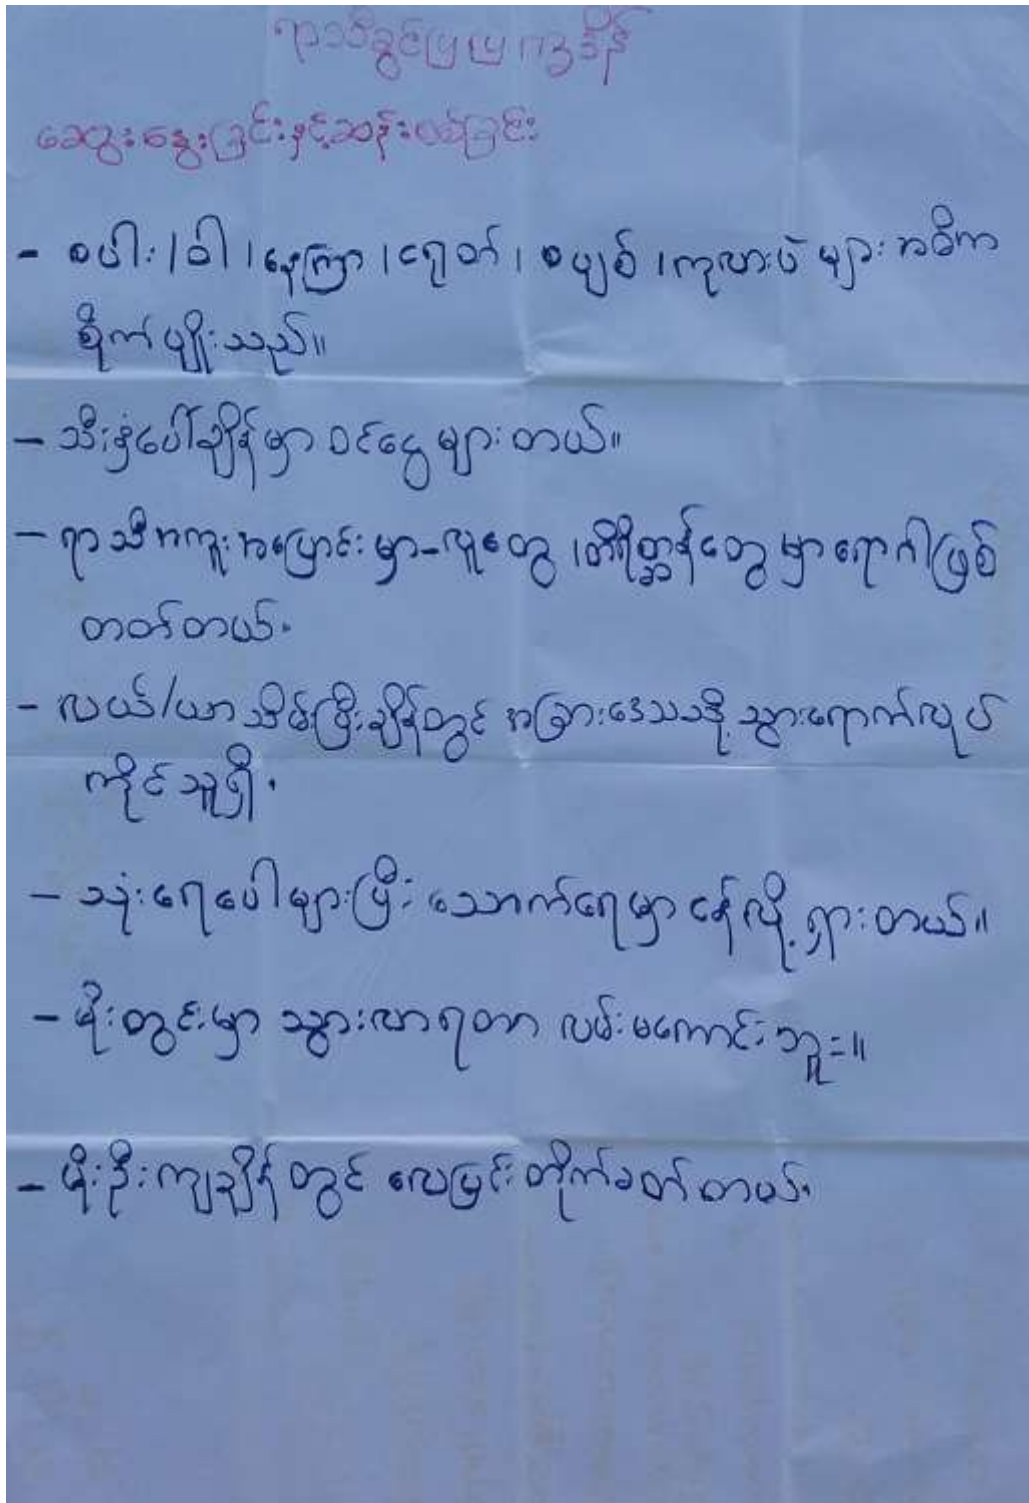 ရာသီခွင်ပြပြက္ခဒိန်
ဆွေးနွေးခြင်းနှင့်ဆန်းစစ်ခြင်း
- စပါး၊ဝါ၊နေကြာ၊ငရုတ်၊စပျစ်၊ကုလားပဲ များအဓိက
စိုက်ပျိုးသည်။
- သီးနှံပေါ်ချိန်မှာ ဝင်ငွေများတယ်။
- ရာသီအကူးအပြောင်းမှာ-လူတွေ၊တိရိစ္ဆာန်တွေမှာရောဂါဖြစ်
တတ်တယ်။
- လယ်/ယာသိမ်းပြီးချိန်တွင် အခြားဒေသသို့သွားရောက်လုပ်
ကိုင်သူရှိ။
- သုံးရေပေါများပြီး သောက်ရေမှာငန်လို့ရှားတယ်။
- မိုးတွင်းမှာ သွားလာရတာ လမ်းမကောင်းဘူး။
- မိုးဦးကျချိန်တွင် လေပြင်းတိုက်ခတ်တယ်။